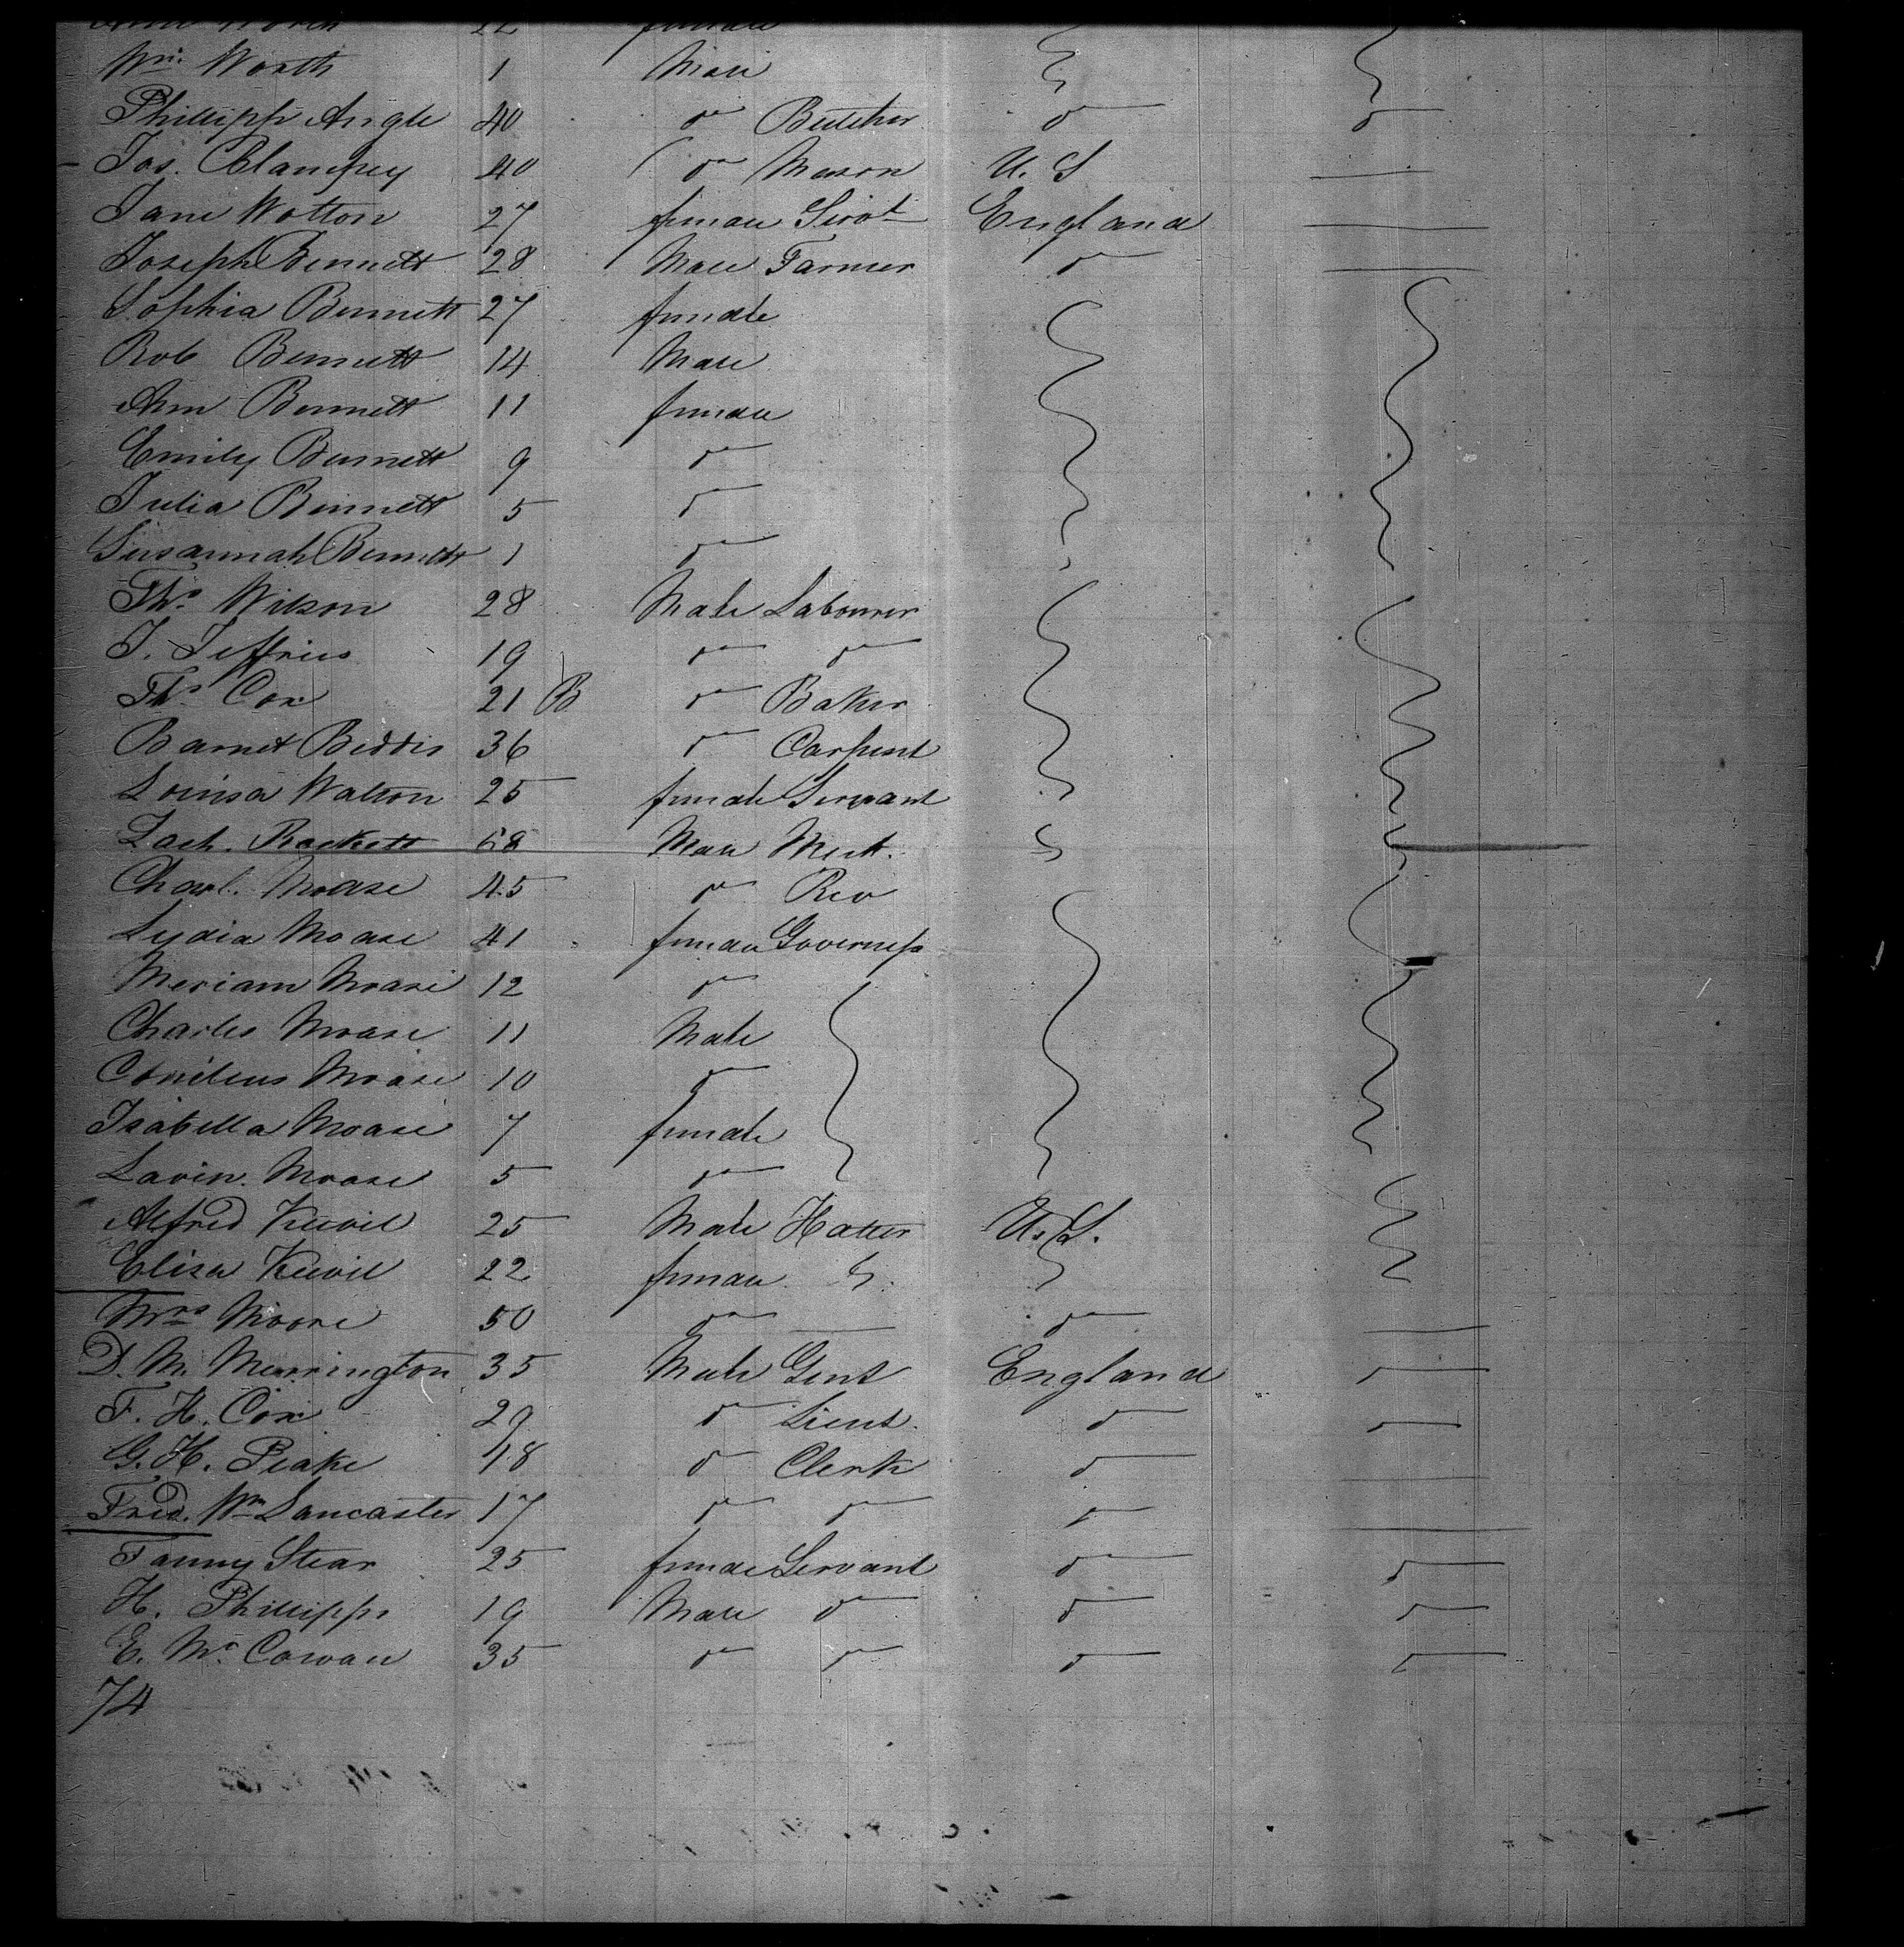 22 female
Wm. Worth 1 Male
Phillipp Angle 40 do Butcher do do
Jos. Clampey 40 do Mason U. S
Jane Wotton 27 female Servt England
Joseph Bennett 28 Male Farmer do
Sophia Bennett 27 female
Rob Bennett 14 Male
Ann Bennett 11 female
Emily Bennett 9 do
Julia Bennett 5 do
Susannah Bennett 1 do
Ths. Wilson 28 Male Labourer
J. Jeffries 19 do do
Ths. Cox 21 B do Baker
Barnet Beddis 36 do Carpent
Louisa Walton 25 female Servant
Zach. Rackett 68 Male Mert.
Charl. Moase 45 do Rev
Lydia Moase 41 female Governess
Meriam Moase 12 do
Charles Moase 11 Male
Moase 10 do
Isabella Moase 7 female
Lavin. Moase 5 do
Alfred 25 Male Hatter U. S.
Elisa 22 female
Mrs Moore 50 do do
D. M. Merrington 35 Male Gent England do
F. H. Cox 29 do Lieut. do do
G. H. Peake 48 do Clerk do
Fred. Wm Lancaster 17 do do do
Fanny Stear 25 female Servant do do
H. Phillipps 19 Male do do do
E. Mc Cowan 35 do do do do
74